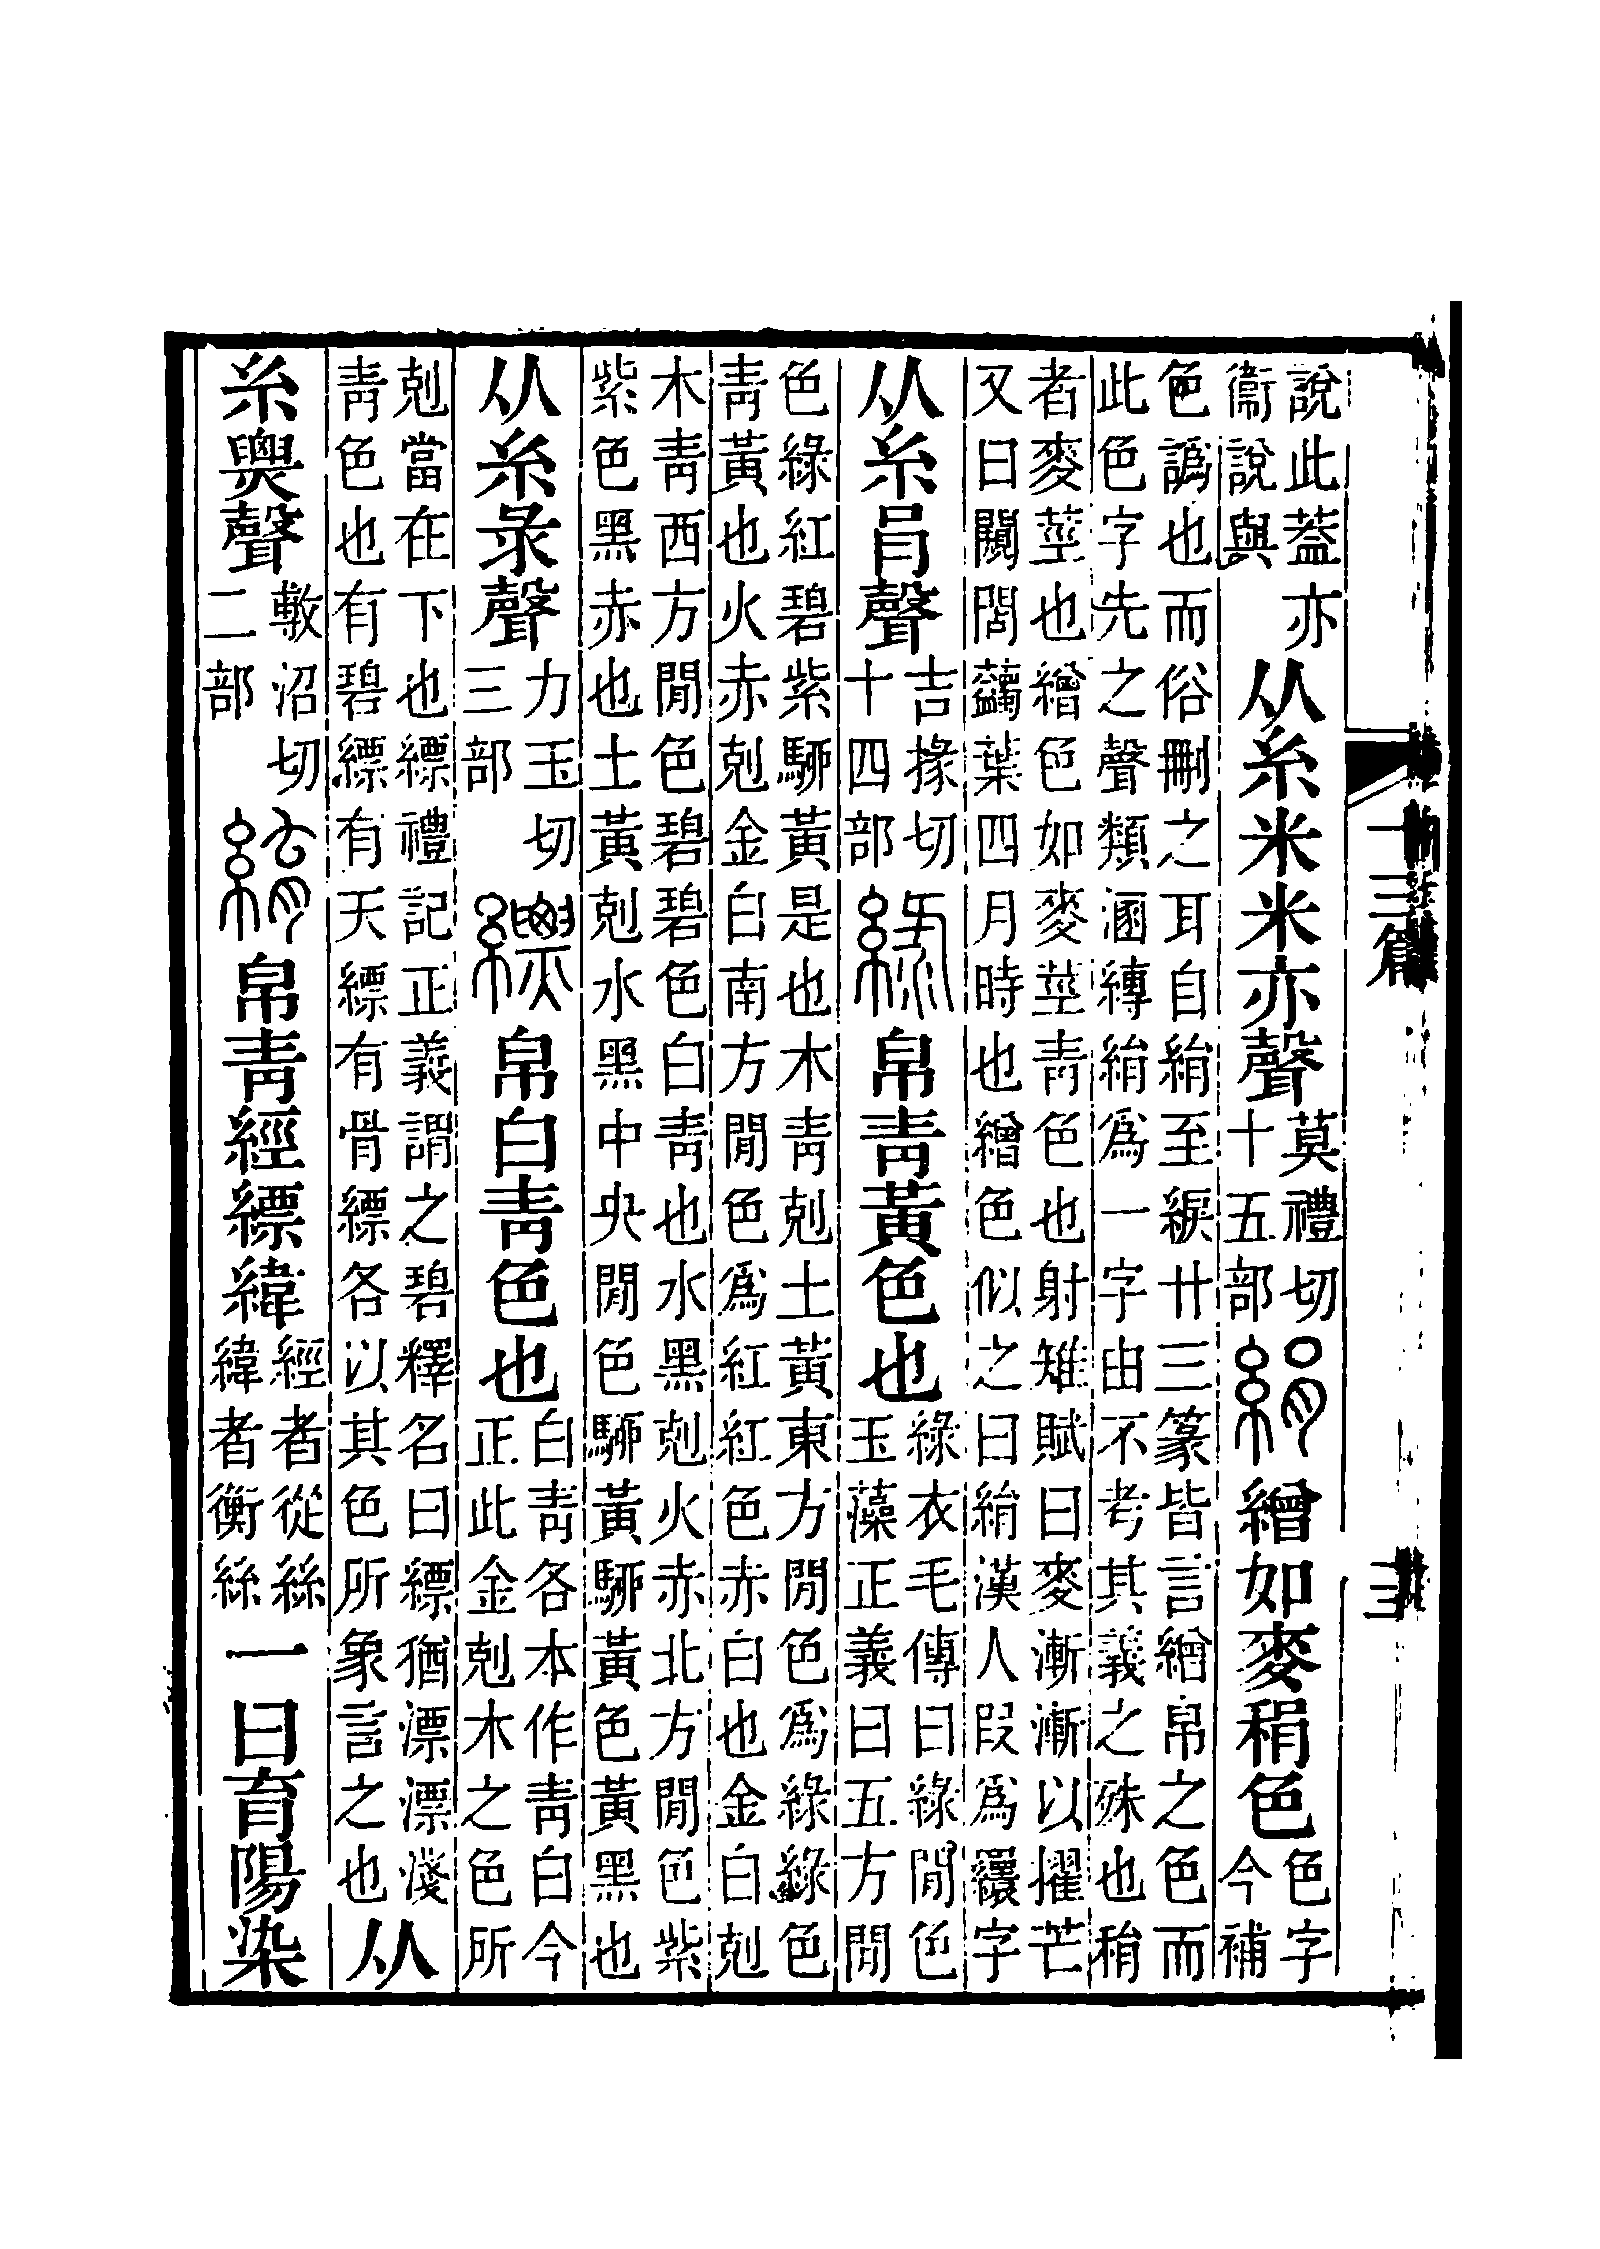 十三篇
三
說此葢亦
衞說與
从糸米米亦聲
莫禮切
十五部
絹
繒如麥䅌色
色字
今補
色譌也而俗刪之耳自絹至綟廿三篆皆言繒帛之色而
此色字先之聲類涵縳絹爲一字由不考其義之殊也䅌
者麥莖也繒色如麥莖靑色也射雉賦曰麥漸漸以擢芒
又曰闚䕎葉四月時也繒色似之曰絹漢人叚爲繯字
从糸肙聲
吉掾切
十四部
綠
帛靑黃色也
綠衣毛傳曰綠閒色
玉藻正義曰五方閒
色綠紅碧紫駵黃是也木靑剋土黃東方閒色爲綠綠色
靑黃也火赤剋金白南方閒色爲紅紅色赤白也金白剋
木靑西方閒色碧碧色白靑也水黑剋火赤北方閒色紫
紫色黑赤也土黃剋水黑中央閒色駵黃駵黃色黃黑也
从糸彔聲
力玉切
三部
縹
帛白靑色也
白靑各本作靑白今
正此金剋木之色所
剋當在下也縹禮記正義謂之碧釋名曰縹猶漂漂淺
靑色也有碧縹有天縹有骨縹各以其色所象言之也
从
糸㶾聲
敷沼切
二部
䋛
帛靑經縹緯
經者從絲
緯者衡絲
一曰育陽染